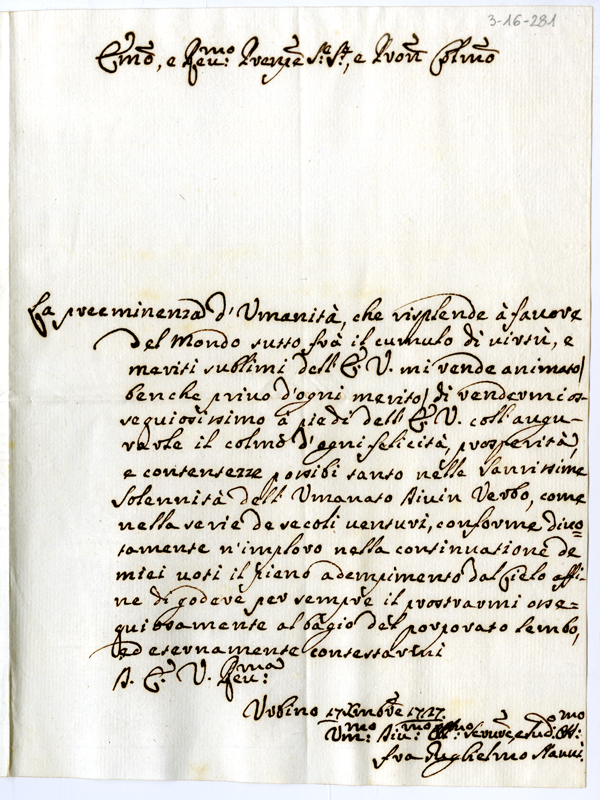 3-16-281
Emo, e Reu:mo Prenpe Sre Sre, e Pron Colmo
La preeminenza d'Umanità, che risplende à fauore
del Mondo tutto frà il cumulo di virtù, e
meriti sublimi dell'E. V. mi rende animato/
benche priuo d'ogni merito/ di rendermi os-
sequiosissimo à piedi dell'E. V. coll'augu-
rarle il colmo d'ogni felicità, prosperità,
e contentezze possibi tanto nella Santissima
Solennità dell'Umanato Diuin Verbo, come
nella serie de secoli uenturi, conforme diuo=
tamente n'imploro nella continuatione de
miei uoti il pieno adempimento dal Cielo affi-
ne di godere per sempre il prostrarmi osse=
quiosamente al bagio del porporato lembo,
ed eternamente contestarmi
D. E. V. Reu:ma
Urbino 17 Xmbre 1727.
Um:mo Diu:mo Serure, e Sud.
fra Guglielmo